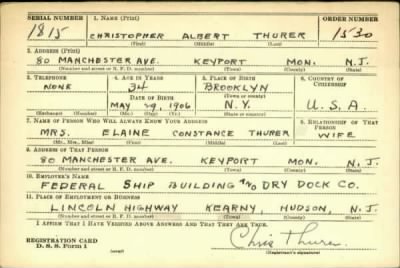 SERIAL NUMBER 1. NAME (Print) ORDER NUMBER
1815 CHRISTOPHER ALBERT THURER 1530
(First) (Middle) (Last)
2. ADDRESS (Print)
80 MANCHESTER AVE. KEYPORT MON. N.J.
(Number and street or R. F. D. number) (Town) (County) (State)
3. TELEPHONE 4. AGE IN YEARS 5. PLACE OF BIRTH 6. COUNTRY OF CITIZENSHIP
NONE 34 BROOKLYN
DATE OF BIRTH (Town or county)
MAY 29, 1906 N.Y. U.S.A.
(Exchange) (Number) (Mo.) (Day) (Yr.) (State or country)
7. NAME OF PERSON WHO WILL ALWAYS KNOW YOUR ADDRESS 8. RELATIONSHIP OF THAT PERSON
MRS. ELAINE CONSTANCE THURER WIFE
(Mr., Mrs., Miss) (First) (Middle) (Last)
9. ADDRESS OF THAT PERSON
80 MANCHESTER AVE. KEYPORT MON. N.J.
(Number and street or R. F. D. number) (Town) (County) (State)
10. EMPLOYER'S NAME
FEDERAL SHIP BUILDING AND DRY DOCK CO.
11. PLACE OF EMPLOYMENT OR BUSINESS
LINCOLN HIGHWAY KEARNY, HUDSON, N.J.
(Number and street or R. F. D. number) (Town) (County) (State)
I AFFIRM THAT I HAVE VERIFIED ABOVE ANSWERS AND THAT THEY ARE TRUE.
REGISTRATION CARD
D. S. S. Form 1 (over) Chris Thurer
(Registrant's signature)